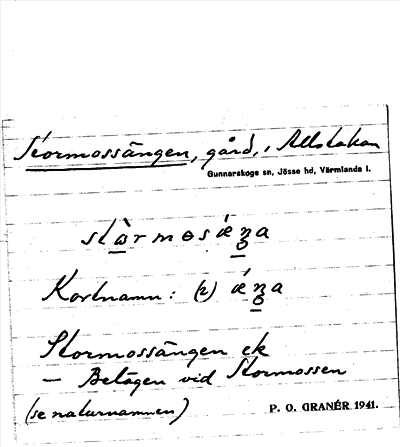 Stormossängen, gård, i Allstakan
Gunnarskogs sn, Jösse hd, Värmlands l.
Kortnamn: (2)
Stormossängen ek
— Belägen vid Stormossen
(se naturnamnen)
P. O. GRANÉR 1941.